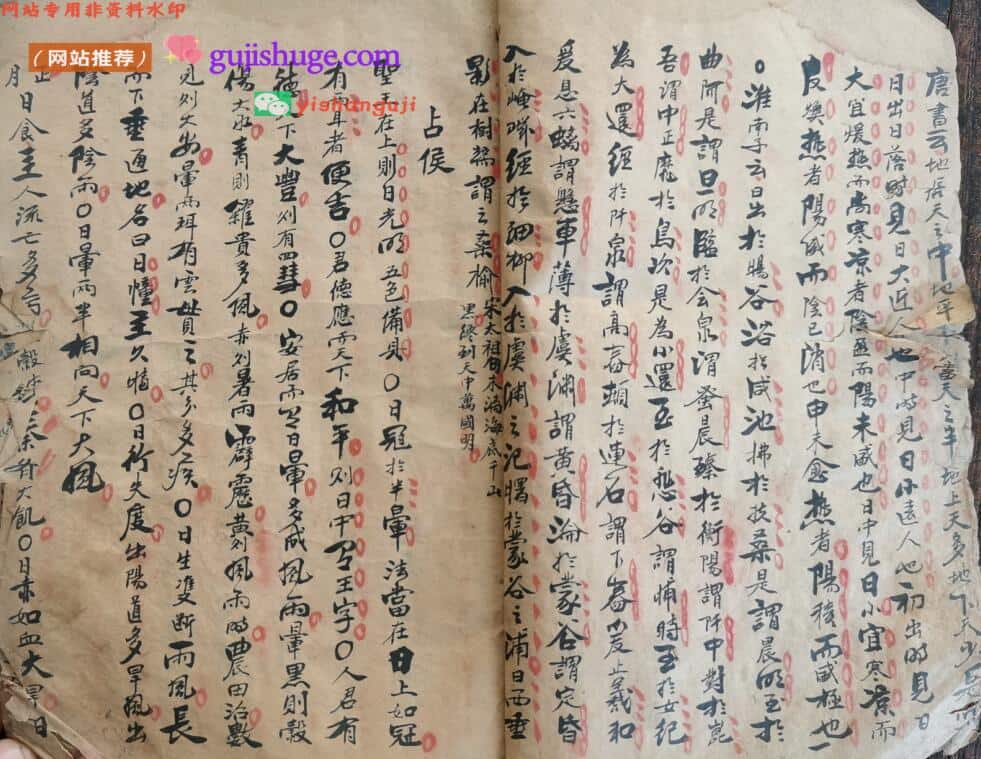 网站专用非资料水印
（网站推荐）
gujishuge.com
yishuguji
唐書云地居天之中地平天之半地上天多地下天少是以
日出日落時見日大近人也中時見日小遠人也初出時見日
大宜煖熱而尚寒凉者陰盛而陽未盛也日中見日小宜寒凉而
反獎熱者陽盛而陰已消也申未愈熱者陽積而盛極也一
○淮南子云日出於暘谷浴於咸池拂於扶桑是謂晨明至於
曲阿是謂旦明臨於会泉謂發晨臻於衡陽謂阡中對於崑
吾謂中正靡於鳥次是為小還至於悲谷謂晡時至於女紀
為大還經於阡泉謂高舂頓於連石謂下舂爰止羲和
爰息六螭謂懸車薄於虞渊謂黄昏淪於蒙谷謂定昏
入於崦嵫經於細柳入於虞渊之汜曙於蒙谷之浦日西垂
影在樹梁謂之桑榆
宋太祖日未満海底千山
黑縂到天中萬國明
占侯
聖王在上則日光明五色備具○日冠於半暈法當在日上如冠
有耳者便吉○君德應而天下和平則日中有王字○人君有
德天下大豐則有四彗○安居而有日暈多成風雨暈黑則穀
傷大水青則糴貴多風赤則暑雨霹靂黄則風雨時農田治數
見則大安暈而珥有雲貫之其多多疾○日生準叉斷雨風長
而下垂通地名曰日幢主久情○日行失度出陽道多旱風出
陰道多陰雨○日暈而半相向天下大風
正月日食主人流亡多
大飢○日赤如血大旱日